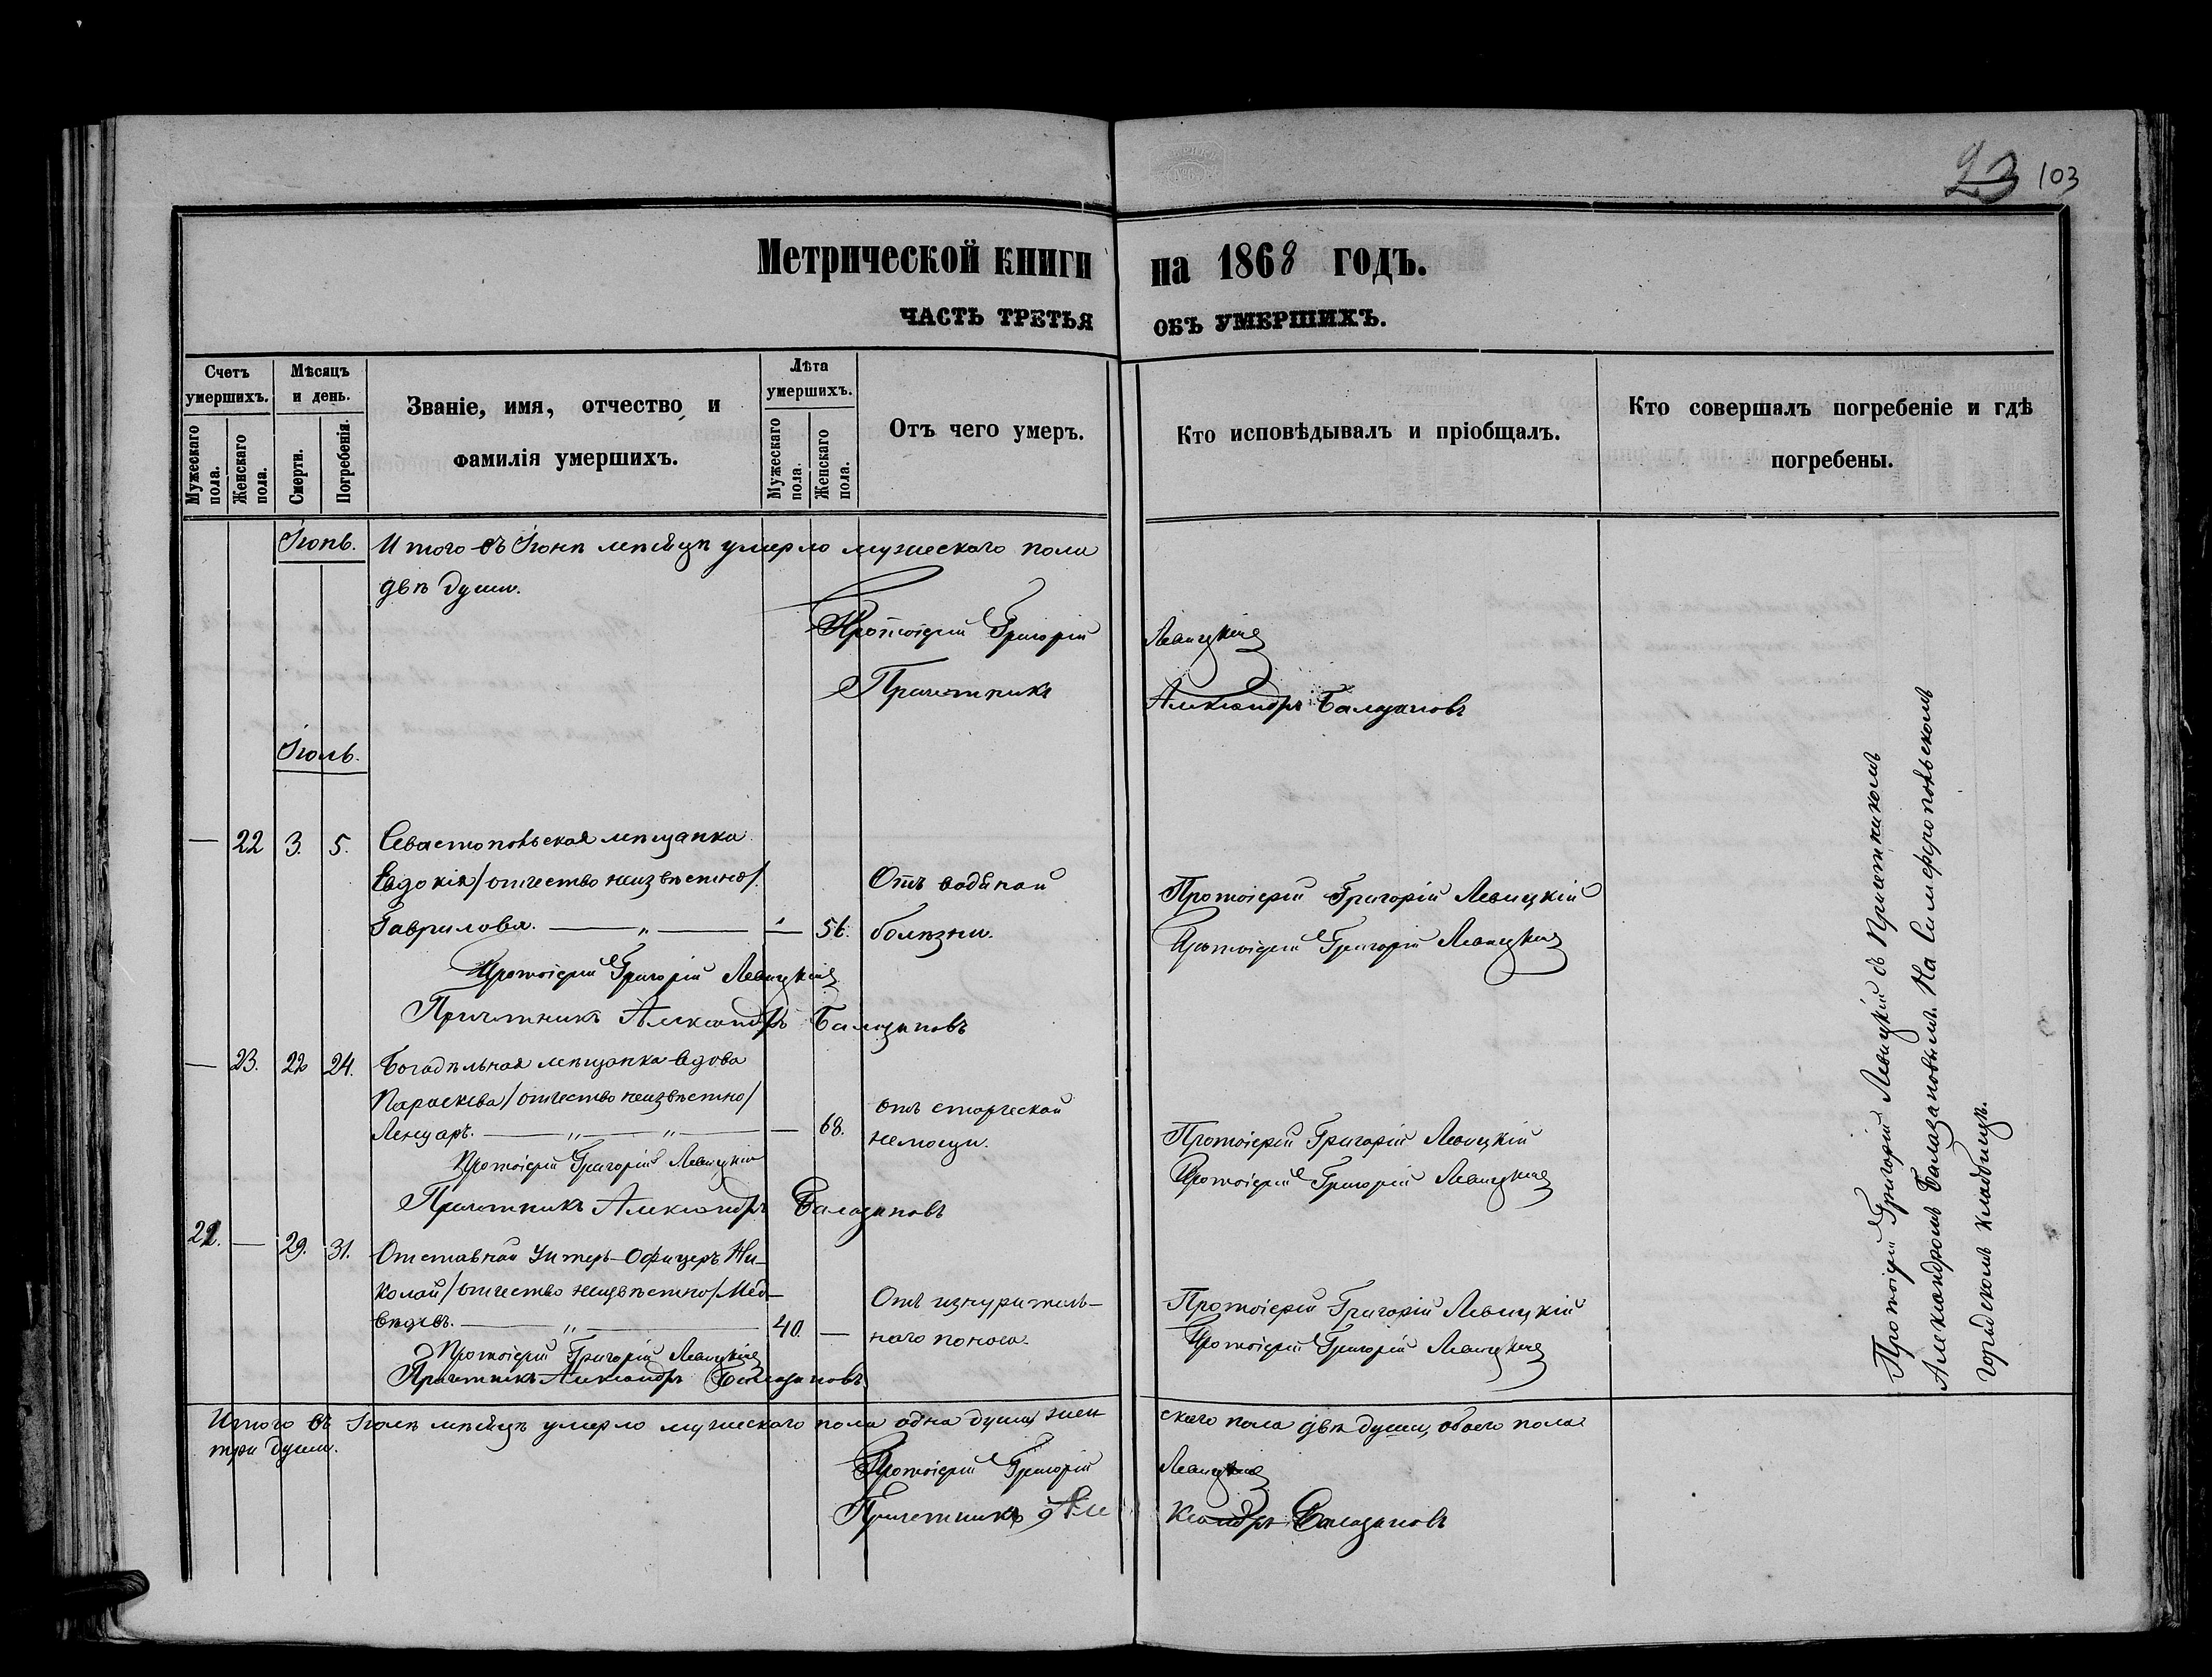 23 103
Метрической книги на 1868 годъ.
ЧАСТЬ ТРЕТЬЯ ОБЪ УМЕРШИХЪ.
Счетъ умершихъ.
Мужескаго пола.
Женскаго пола.
Мѣсяцъ и день.
Смерти.
Погребенія.
Званіе, имя, отчество и
фамилія умершихъ.
Лѣта умершихъ.
Мужескаго пола.
Женскаго пола.
Отъ чего умеръ.
Кто исповѣдывалъ и пріобщалъ.
Кто совершалъ погребеніе и гдѣ
погребены.
Іюнь. Итого въ Іюнѣ мѣсяцѣ умерло мужескаго пола
двѣ души.
Протоіерей Григорій Левицкій
Причетникъ Александръ Балазановъ
Іюль.
— 22 3. 5. Севастопольская мѣщанка
Евдокія /отчество неизвѣстно/ Отъ водяной Протоіерей Григорій Левицкій
Гаврилова. — „ — — 56. болѣзни. Протоіерей Григорій Левицкій
Протоіерей Григорій Левицкій
Причетникъ Александръ Балазановъ
— 23. 22 24. Богадѣльная мѣщанка вдова
Параскева /отчество неизвѣстно/ отъ старческой
— „ — „ — — 68. немощи. Протоіерей Григорій Левицкій
Протоіерей Григорій Левицкій Протоіерей Григорій Левицкій
Причетникъ Александръ Балазановъ
22. — 29. 31. Отставной Унтеръ-Офицеръ Ни-
колай /отчество неизвѣстно/ Мед- Отъ изнуритель- Протоіерей Григорій Левицкій
вѣдевъ. — „ — 40. — наго поноса. Протоіерей Григорій Левицкій
Протоіерей Григорій Левицкій
Причетникъ Александръ Балазановъ
Протоіерей Григорій Левицкій съ Причетникомъ
Александромъ Балазановымъ. На Симферопольскомъ
городскомъ кладбищѣ.
Итого въ Іюлѣ мѣсяцѣ умерло мужескаго пола одна душа, женскаго пола двѣ души, обоего пола
три души.
Протоіерей Григорій Левицкій
Причетникъ Александръ Балазановъ